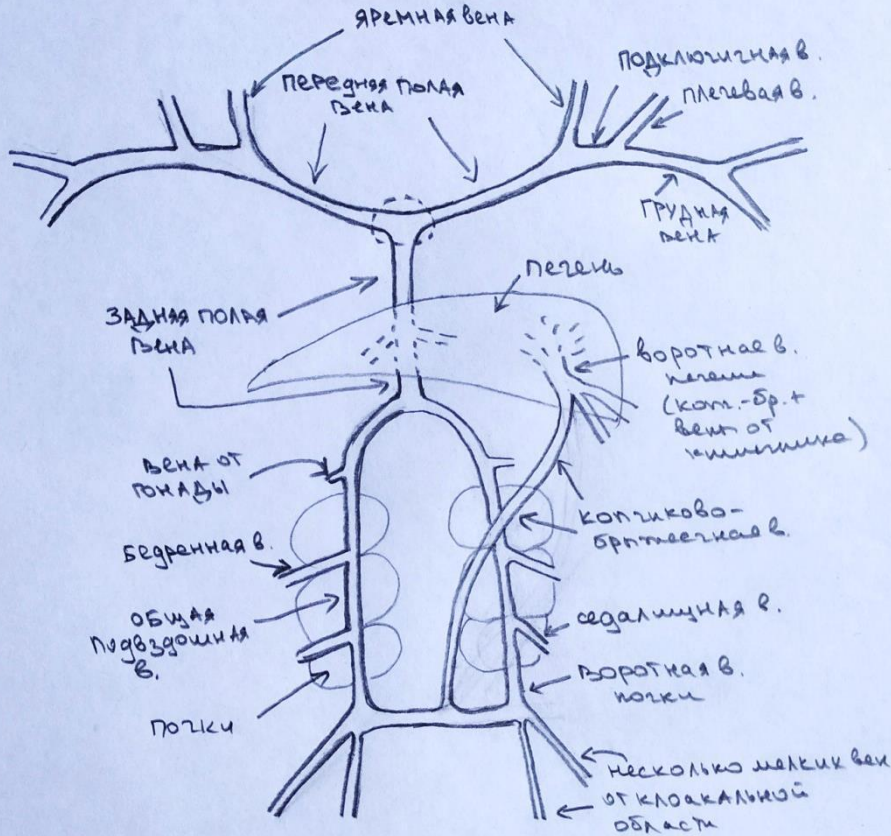 ЯРЕМНАЯ ВЕНА
ПЕРЕДНЯЯ ПОЛАЯ
ВЕНА
ПОДКЛЮЧИЧНАЯ В.
ПЛЕЧЕВАЯ В.
ГРУДНАЯ
ВЕНА
ПЕЧЕНЬ
ЗАДНЯЯ ПОЛАЯ
ВЕНА
ВОРОТНАЯ В.
ПЕЧЕНИ
(КОП.-БР.+
ВЕНЫ ОТ
КИШЕЧНИКА)
ВЕНА ОТ
ГОНАДЫ
КОПЧИКОВО-
БРЫЖЕЕЧНАЯ В.
БЕДРЕННАЯ В.
ОБЩАЯ
ПОДВЗДОШНАЯ
В.
СЕДАЛИЩНАЯ В.
ВОРОТНАЯ В.
ПОЧКИ
ПОЧКИ
НЕСКОЛЬКО МЕЛКИХ ВЕН
ОТ КЛОАКАЛЬНОЙ
ОБЛАСТИ